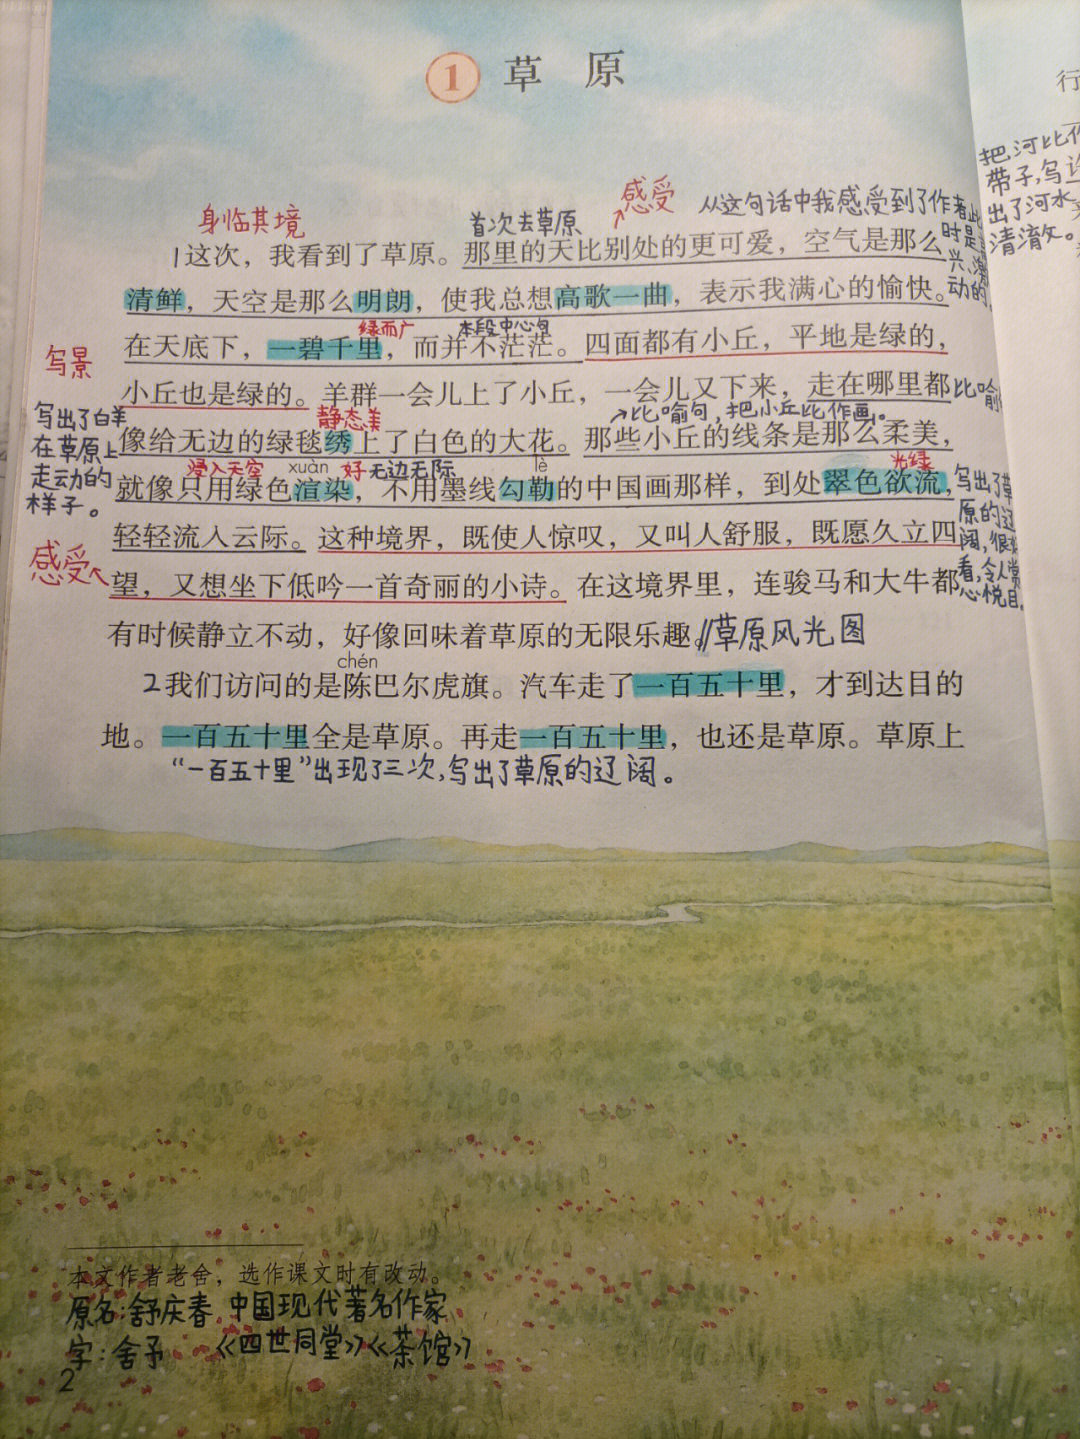 1 草原
感受
身临其境
首次去草原
从这句话中我感受到了作者此
时是
兴、激
动的
1这次，我看到了草原。那里的天比别处的更可爱，空气是那么
清鲜，天空是那么明朗，使我总想高歌一曲，表示我满心的愉快。
绿而广
本段中心句
在天底下，一碧千里，而并不茫茫。四面都有小丘，平地是绿的，
写景
小丘也是绿的。羊群一会儿上了小丘，一会儿又下来，走在哪里都
比喻
写出了白羊
在草原上
走动的
样子。
静态美
比喻句，把小丘比作画。
像给无边的绿毯绣上了白色的大花。那些小丘的线条是那么柔美，
浸入天空
xuàn
好
无边无际
lè
光绿
就像只用绿色渲染，不用墨线勾勒的中国画那样，到处翠色欲流，
写出了草
原的辽
阔，很好
看，令人赏
心悦目。
轻轻流入云际。这种境界，既使人惊叹，又叫人舒服，既愿久立四
感受
望，又想坐下低吟一首奇丽的小诗。在这境界里，连骏马和大牛都
有时候静立不动，好像回味着草原的无限乐趣。//草原风光图
chén
2我们访问的是陈巴尔虎旗。汽车走了一百五十里，才到达目的
地。一百五十里全是草原。再走一百五十里，也还是草原。草原上
“一百五十里”出现了三次，写出了草原的辽阔。
本文作者老舍，选作课文时有改动。
原名：舒庆春 中国现代著名作家
字：舍予 《四世同堂》《茶馆》
2
行
把河比作
带子，写
出了河水
清澈。